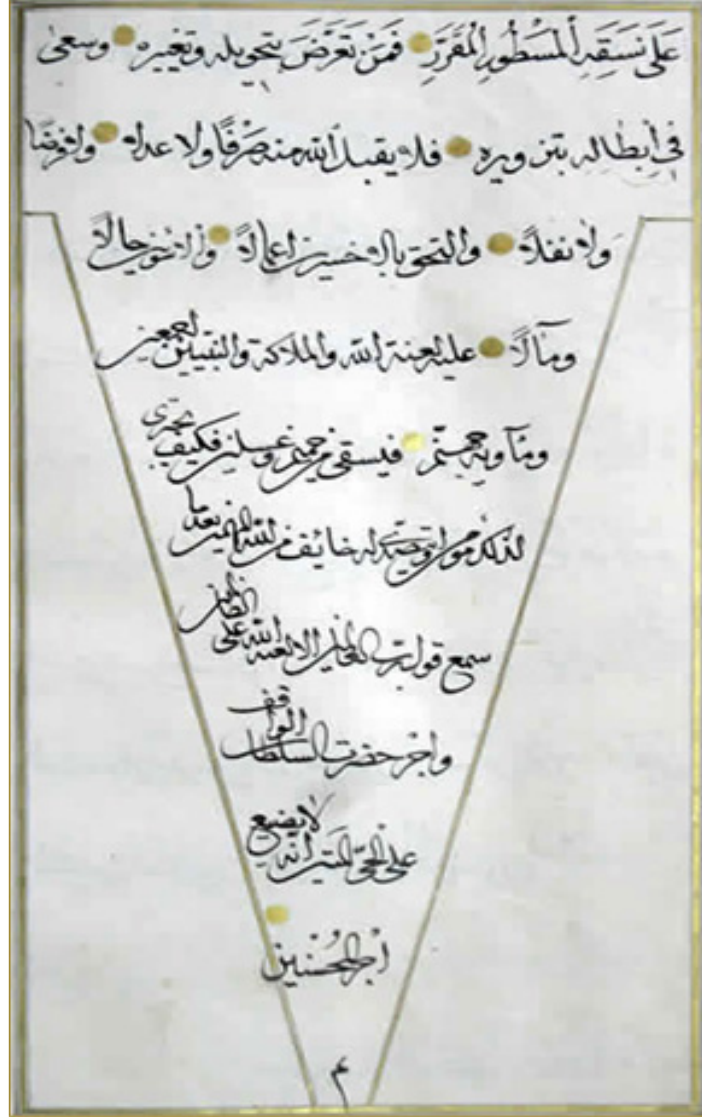 عَلَى نَسَقِهِ الْمَسْطُورِ الْمُقَرَّرِ فَمَنْ تَعَرَّضَ بتحويله وتغييره وسعى
فى ابطاله بتزويره فلا يقبل الله منه صَرْفًا ولا عدلا ولا فرضا
ولا نفلا والتحق بالاخسرين اعمالا والاسوئين حالا
ومآلا عليه لعنة الله والملائكة والنبيين اجمعين
ومأويه جهنم فيسقى من حميم وغسلين فكيف يجترئ
لذلك من له خائف من الله بعدما
سمع قول رب العالمين الا لعنة الله على الظالمين
واجر حضرت السلطان الواقف
على الحى المتين انه لا يضيع
اجر المحسنين
م